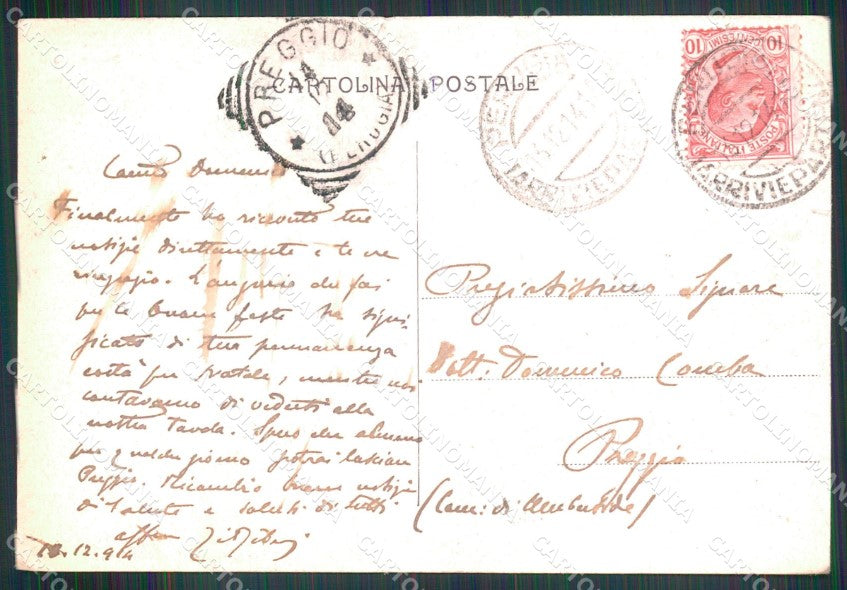 CARTOLINA POSTALE
PREGGIO
14
(PERUGIA)
PERUGIA
12.14
(ARRIVI E PART
(ARRIVI E PART
10 CENTESIMI 10
POSTE ITALIANE
Caro Domenico
Finalmente ho ricevuto tue
notizie direttamente e te ne
ringrazio. L'augurio che fai
per le buone feste ha signi-
ficato di tua permanenza
costà per Natale, mentre noi
contavamo di vederti alla
nostra tavola. Spero che almeno
per qualche giorno potrai lasciare
Preggio. Ricambio buone notizie
di salute e saluti di tutti
aff
12.914
Pregiatissimo Signore
Dott. Domenico Comba
Preggio
(Com: di Umbertide)
CARTOLINOMANIA